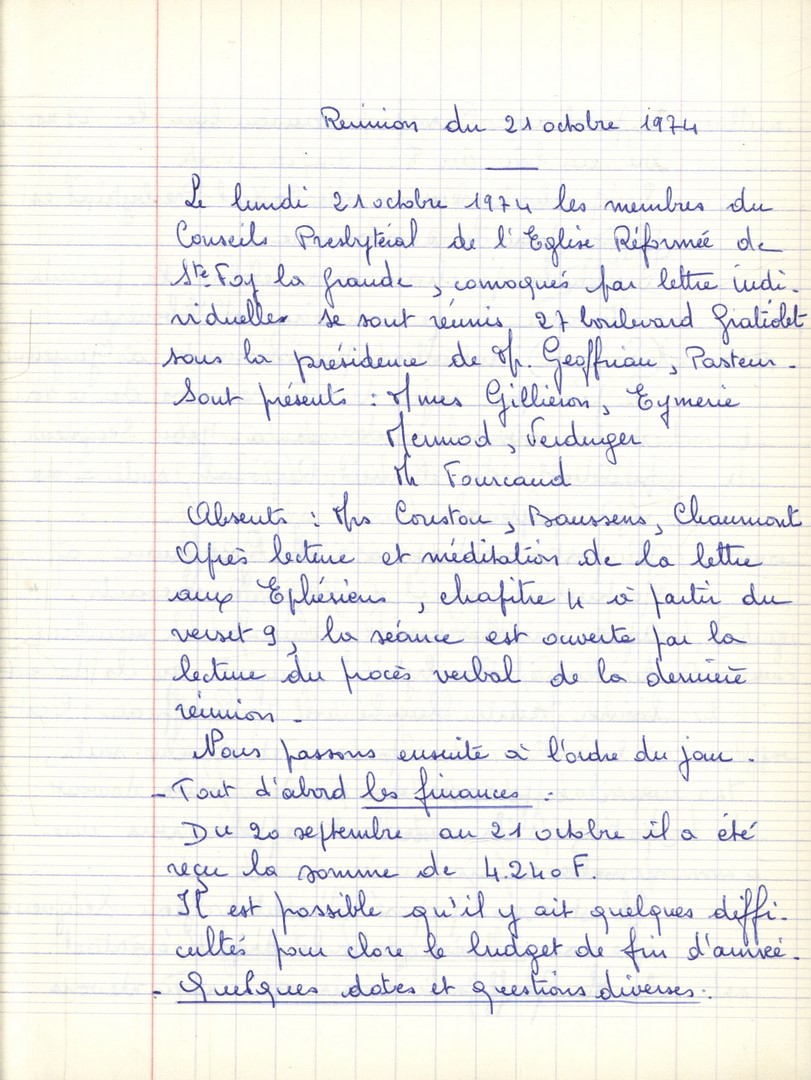 Réunion du 21 octobre 1974
Le lundi 21 octobre 1974 les membres du
Conseils Presbytéral de l'Eglise Réformée de
Ste Foy la grande, convoqués par lettre indi-
viduelles se sont réunis, 27 boulevard Gratiolet
sous la présidence de Mr. Geoffriau, Pasteur.
Sont présents : Mmes Gilliéron, Eymerie
Mermod, Verdurger
Mr Fourcaud
Absents : Mrs Coustou, Baussens, Chaumont
Après lecture et méditation de la lettre
aux Ephésiens, chapitre 4 à partir du
verset 9, la séance est ouverte par la
lecture du procès verbal de la dernière
réunion.
Nous passons ensuite à l'ordre du jour.
- Tout d'abord les finances :
Du 20 septembre au 21 octobre il a été
reçu la somme de 4.240 F.
Il est possible qu'il y ait quelques diffi-
cultés pour clore le budget de fin d'année.
- Quelques dates et questions diverses :